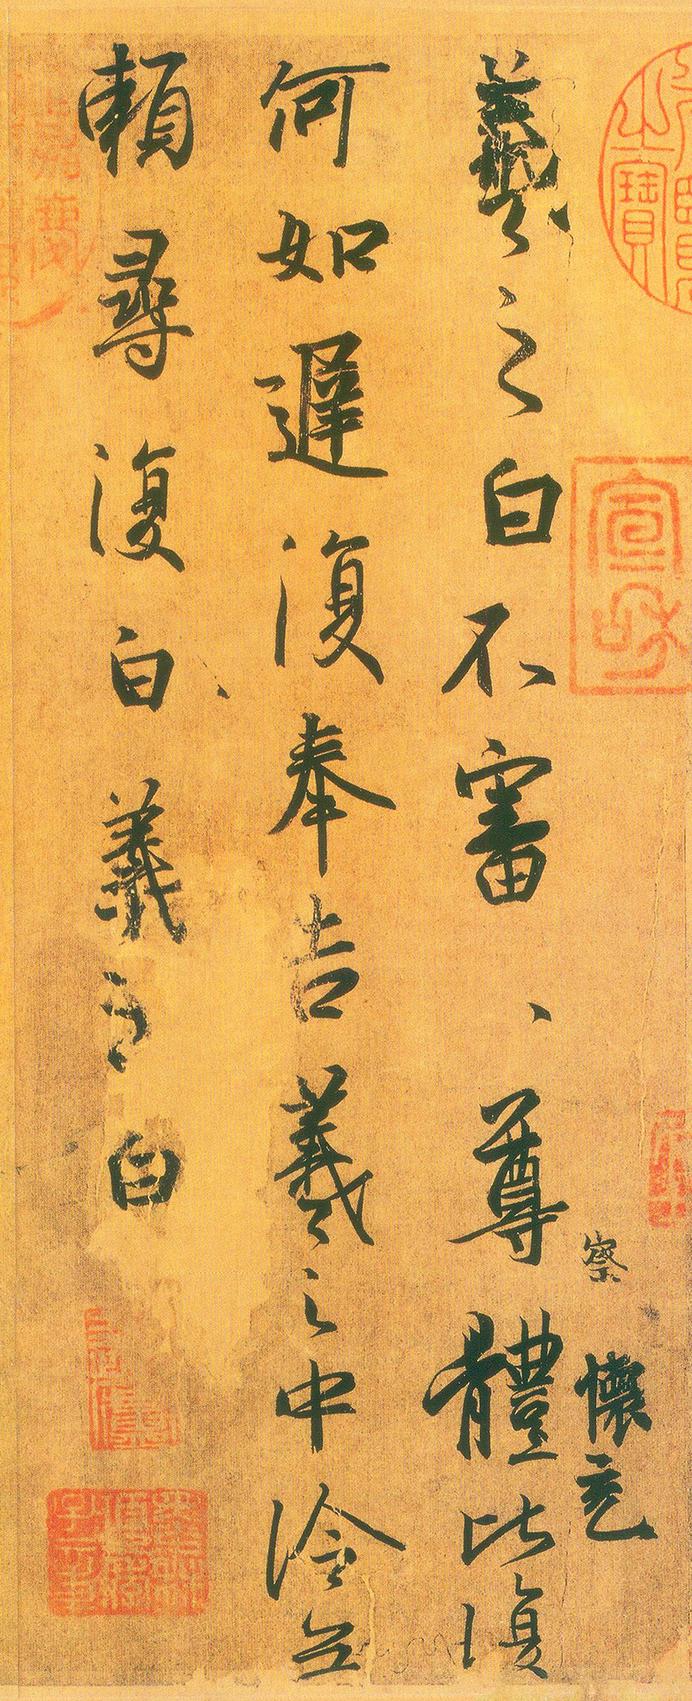 宣和
察
懷充
羲之白不審尊體比復
何如遲復奉告羲之中冷無
賴尋復白羲之白